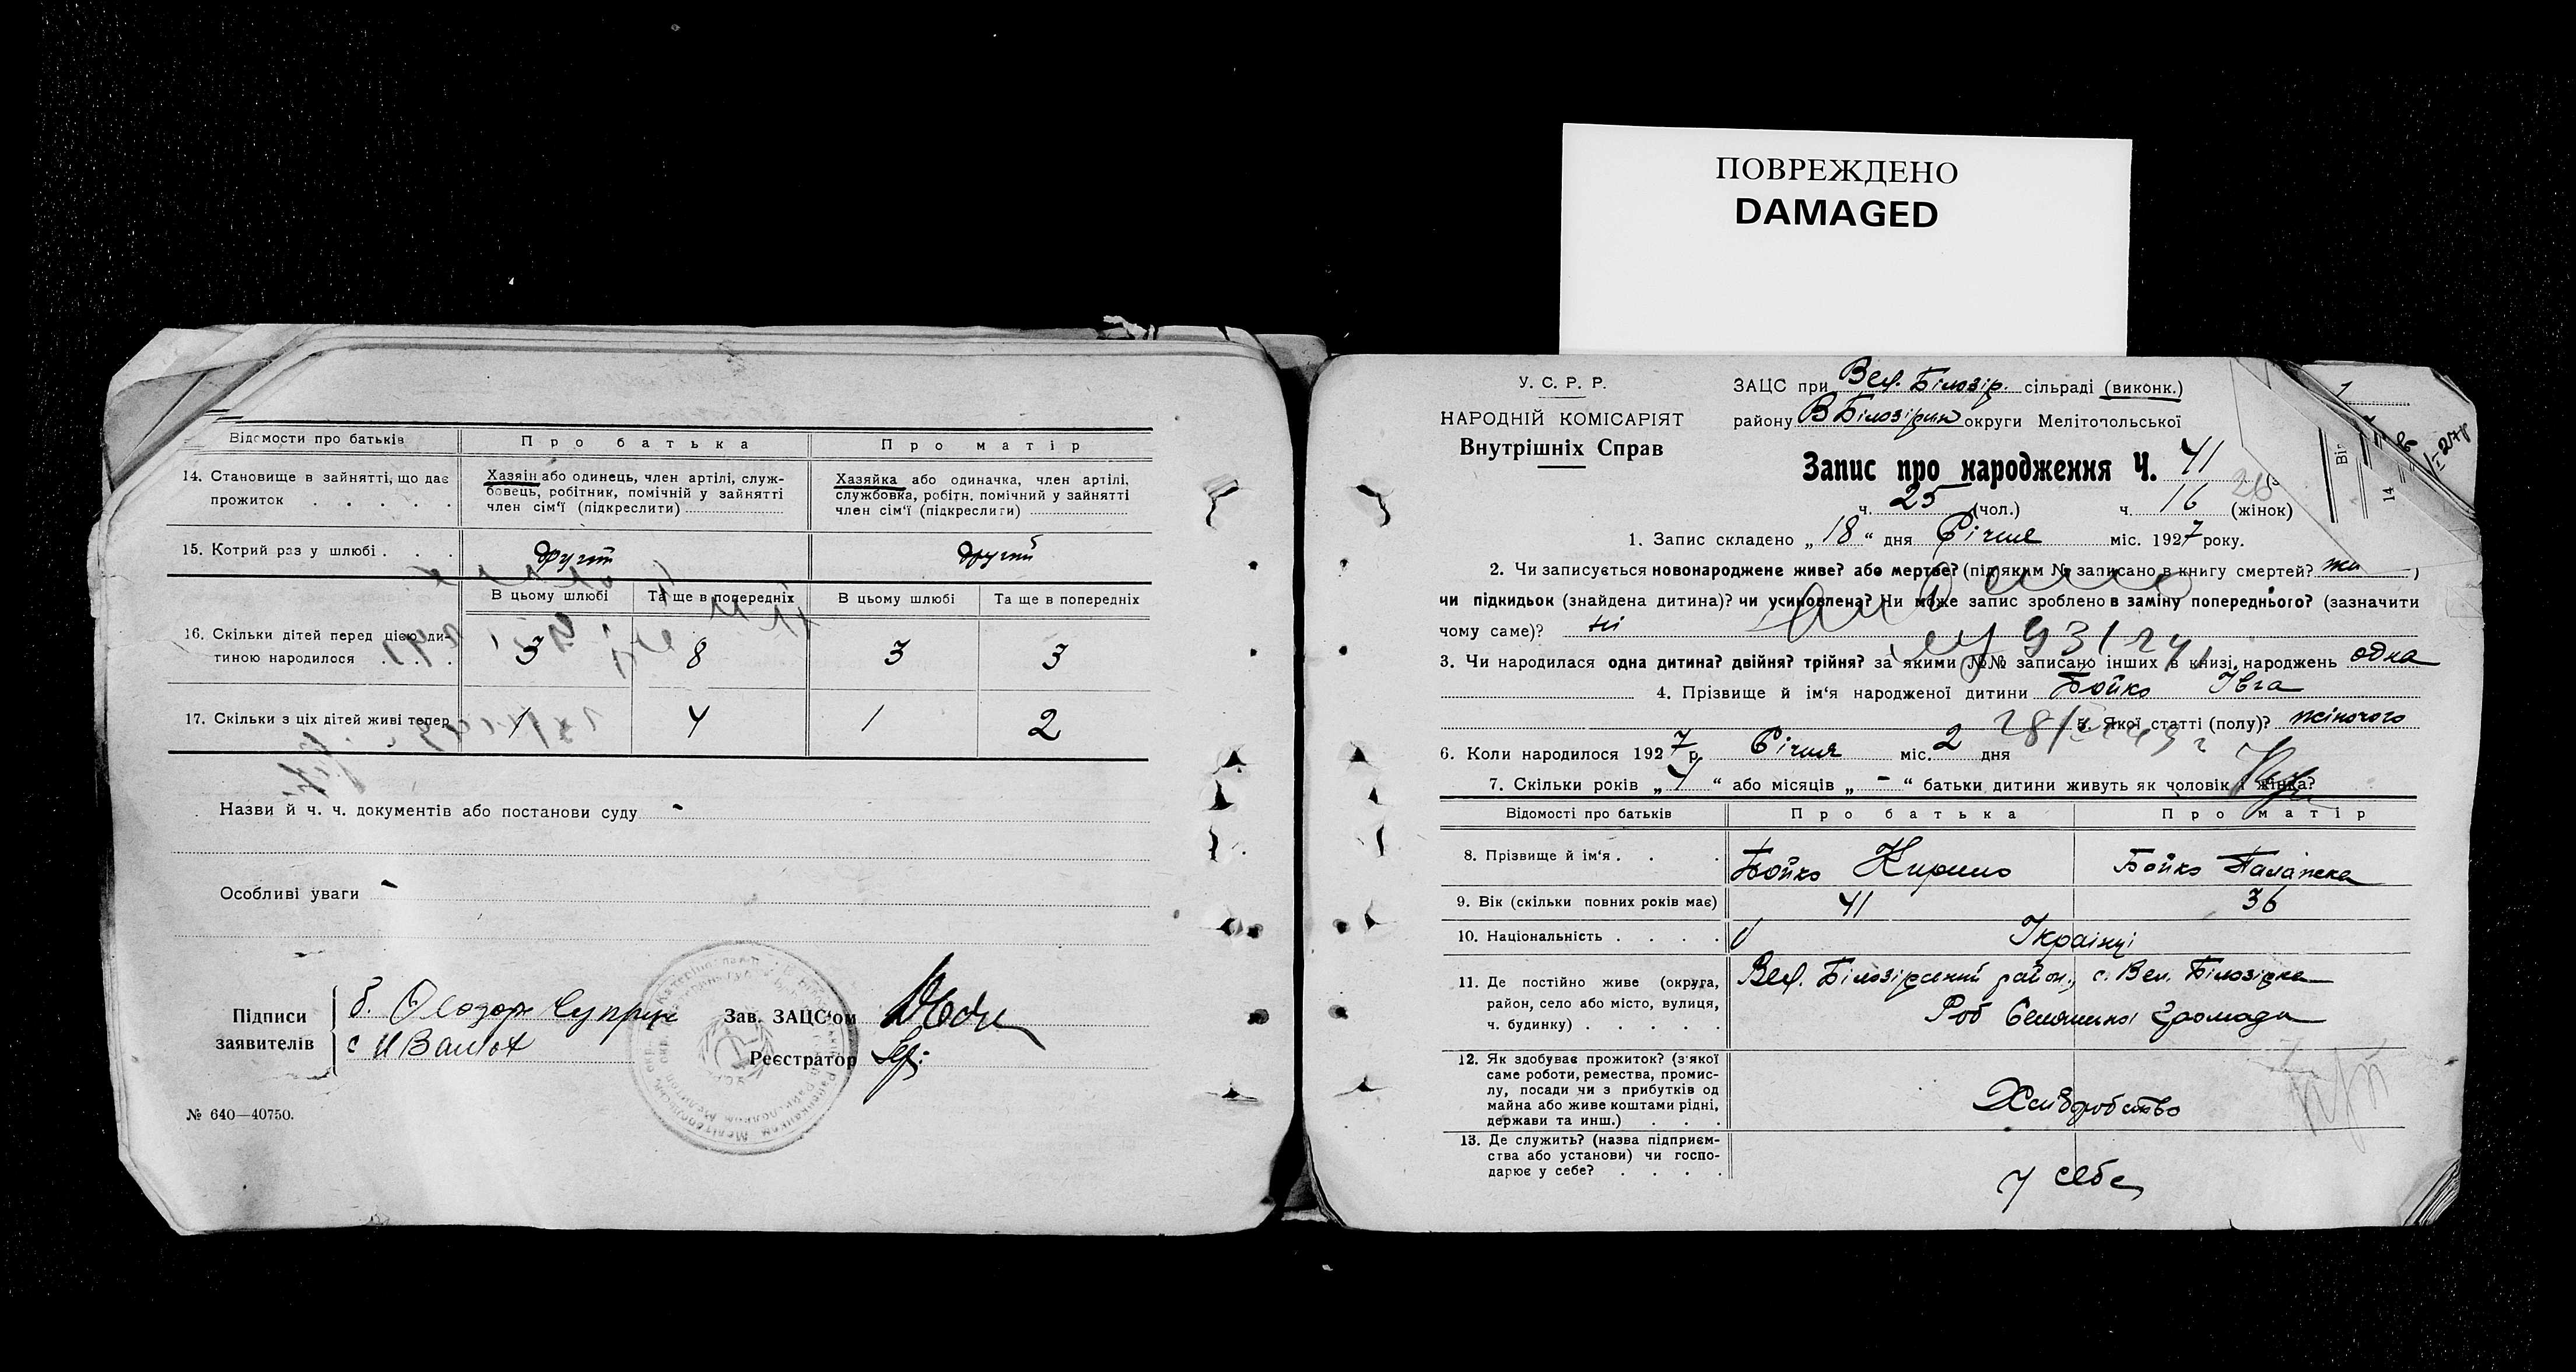 ПОВРЕЖДЕНО
DAMAGED
Відомости про батьків
Про батька
Про матір
14. Становище в зайнятті, що дає
прожиток . . . . .
Хазяін або одинець, член артілі, служ-
бовець, робітник, помічній у зайнятті
член сім'ї (підкреслити)
Хазяйка або одиначка, член артілі,
службовка, робітн. помічний у зайнятті
член сім'ї (підкреслити)
15. Котрий раз у шлюбі . . .
другий
другий
В цьому шлюбі
Та ще в попередніх
В цьому шлюбі
Та ще в попередніх
16. Скільки дітей перед цією ди-
тиною народилося . . . .
3
8
3
3
17. Скільки з ціх дітей живі тепер
1
4
1
2
Назви й ч. ч. документів або постанови суду -
Особливі уваги -
Підписи
заявителів
Зав. ЗАЦС'ом
Реєстратор
№ 640—40750.
У. С. Р. Р.
НАРОДНІЙ КОМІСАРІЯТ
Внутрішніх Справ
ЗАЦС при Вел. Білозір. сільраді (виконк.)
району В Білозірки округи Мелітопольської
Запис про народження Ч. 41
ч. 25 (чол.) ч. 16 (жінок)
26
1. Запис складено „ 18 “ дня Січня міс. 1927 року.
2. Чи записується новонароджене живе? або мертве? (під яким № записано в книгу смертей? жи )
чи підкидьок (знайдена дитина)? чи усиновлена? Чи може запис зроблено в заміну попереднього? (зазначити
чому саме)? ні
3. Чи народилася одна дитина? двійня? трійня? за якими №№ записано інших в книзі народжень одна
4. Прізвище й ім'я народженої дитини Бойко Івга
5. Якої статті (полу)? жіночого
6. Коли народилося 1927 р. Січня міс. 2 дня
7. Скільки років „ 4 “ або місяців „ - “ батьки дитини живуть як чоловік і жінка?
Відомості про батьків
Про батька
Про матір
8. Прізвище й ім'я . . .
Бойко Кирило
Бойко Палажка
9. Вік (скільки повних років має)
41
36
10. Національність . . . .
Українці
11. Де постійно живе (округа,
район, село або місто, вулиця,
ч. будинку) . . . . .
Вел. Білозірський район, с. Вел. Білозірка
Роб Селянської Громади
12. Як здобуває прожиток? (з якої
саме роботи, ремества, промис-
лу, посади чи з прибутків од
майна або живе коштами рідні,
держави та инш.) . . .
Хліборобство
13. Де служить? (назва підприєм-
ства або установи) чи госпо-
дарює у себе? . . . .
у себе